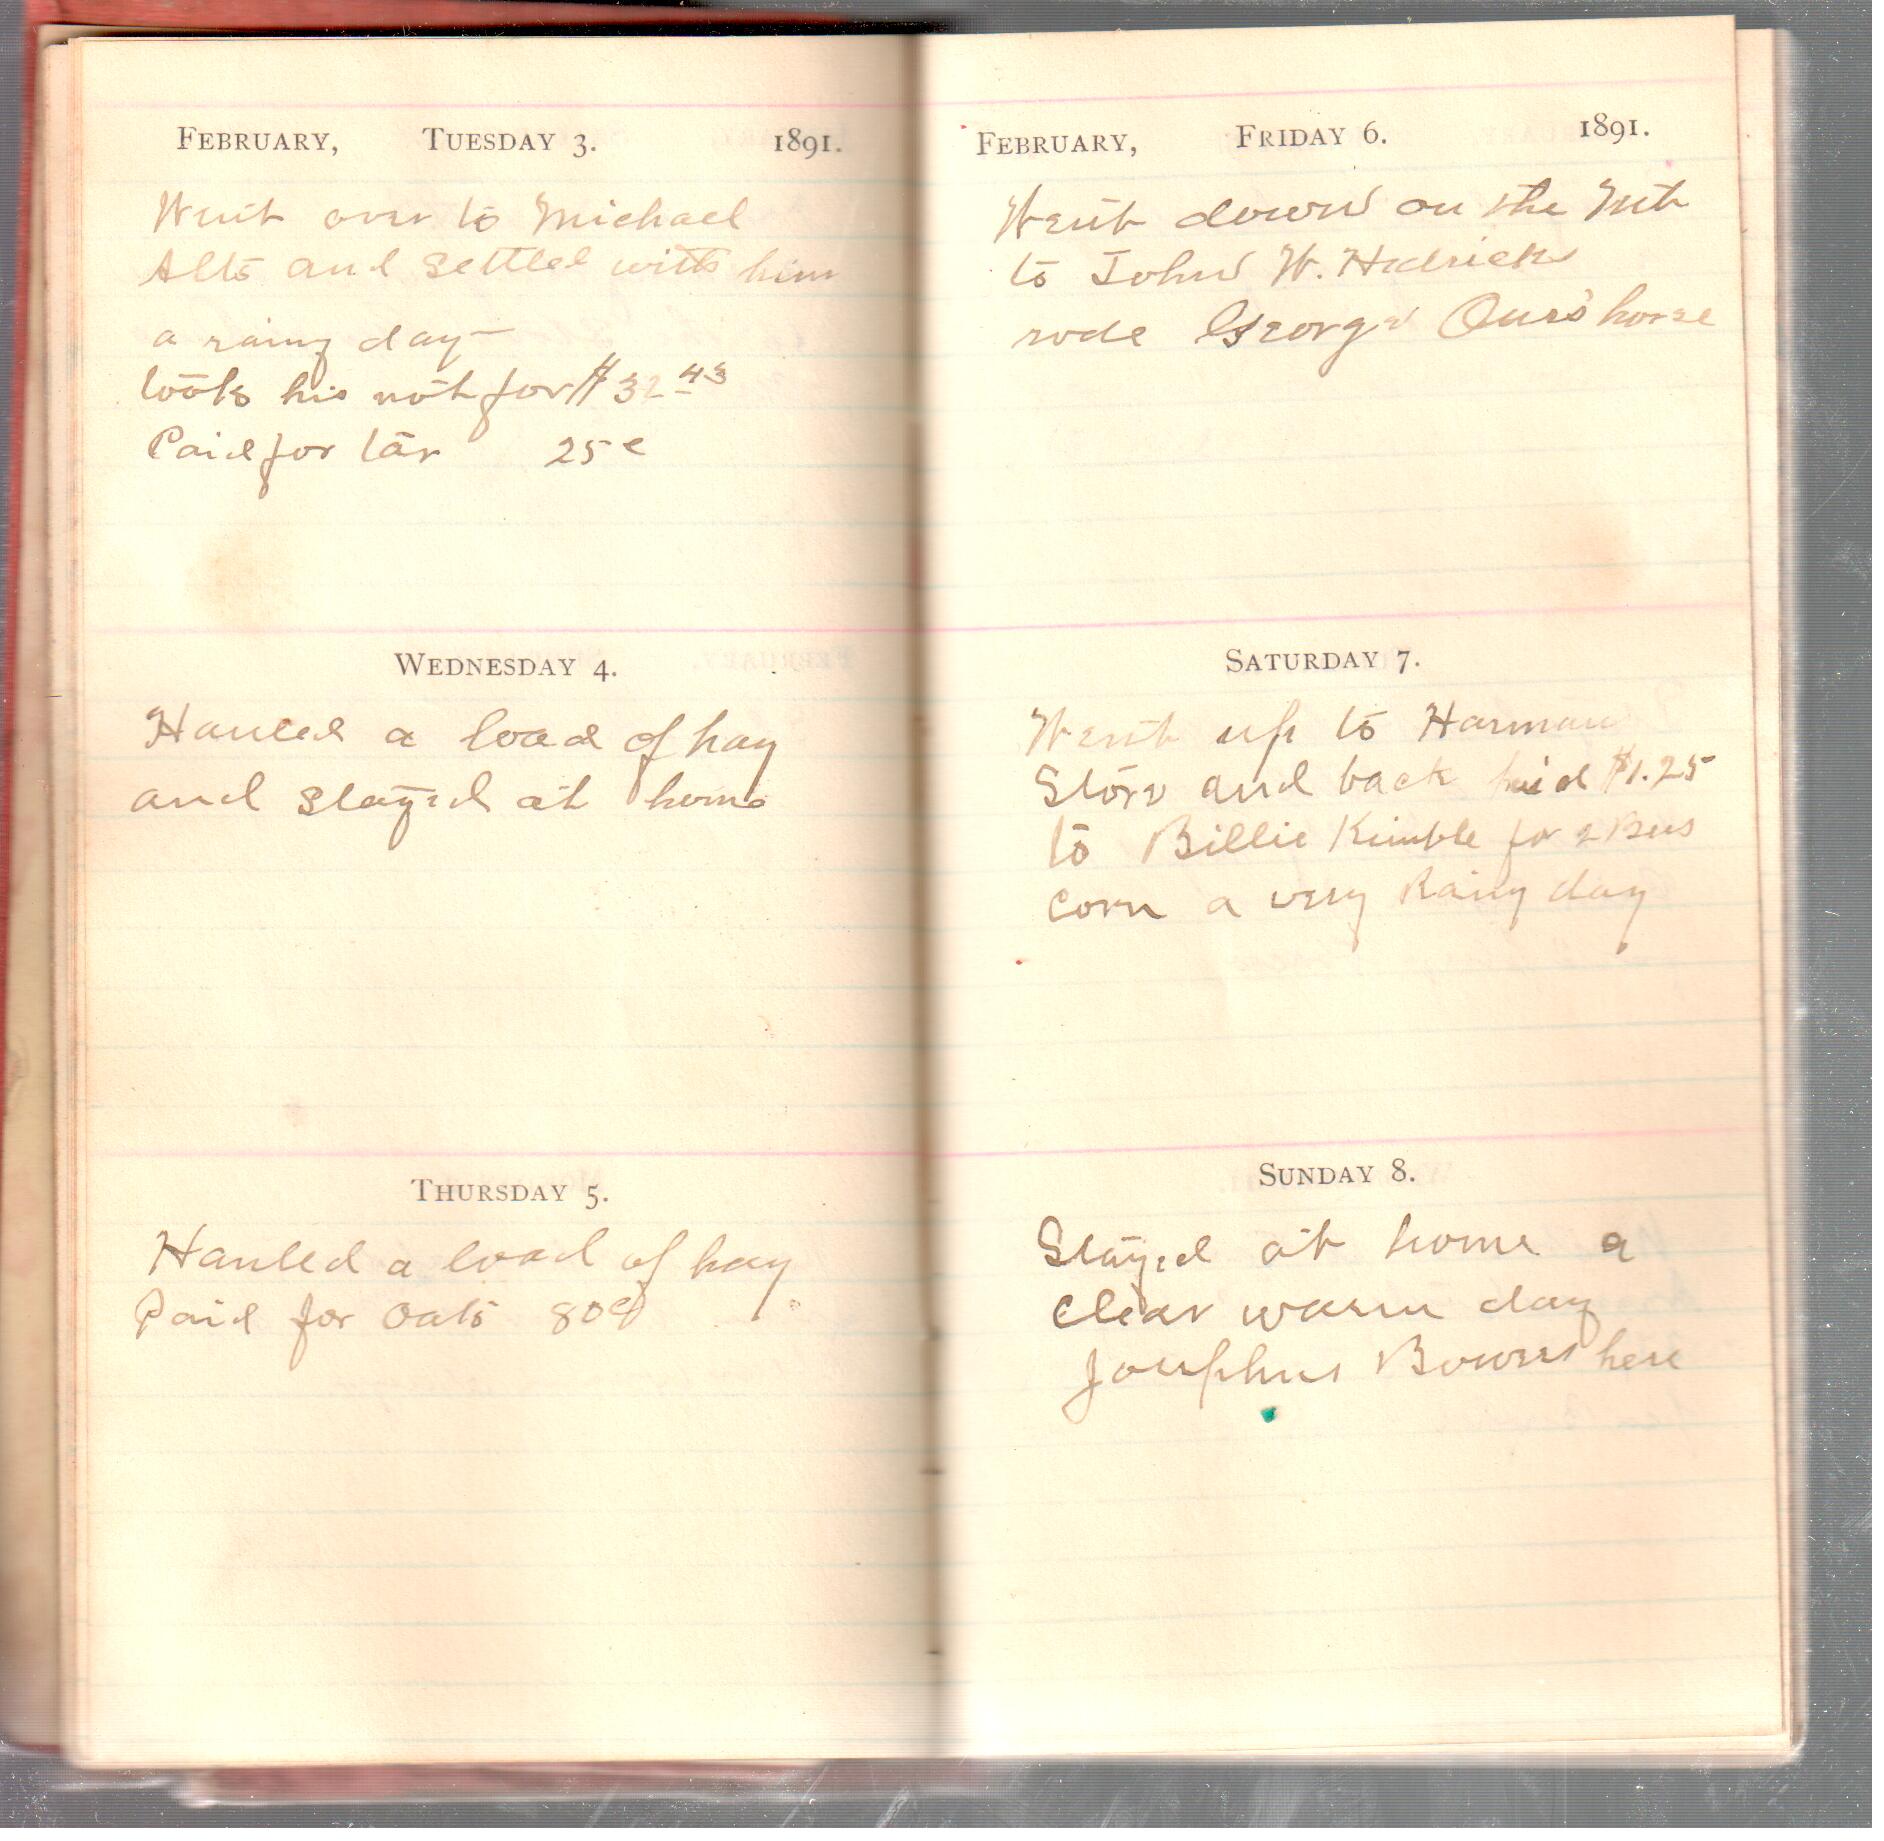 FEBRUARY, TUESDAY 3. 1891.
Went over to Michael
Alts and settled with him
a rainy day
took his not for $32 43
Paid for tar 25c
WEDNESDAY 4.
Hauled a load of hay
and stayed at home
THURSDAY 5.
Hauled a load of hay
Paid for oats 80c
FEBRUARY, FRIDAY 6. 1891.
Went down on the Mt
to John W. Hedricks
rode George Ours' horse
SATURDAY 7.
Went up to Harman
Store and back paid $1.25
to Billie Kimble for 2 Bus
corn a very Rainy day
SUNDAY 8.
Stayed at home a
clear warm day
Josephus Bowers here